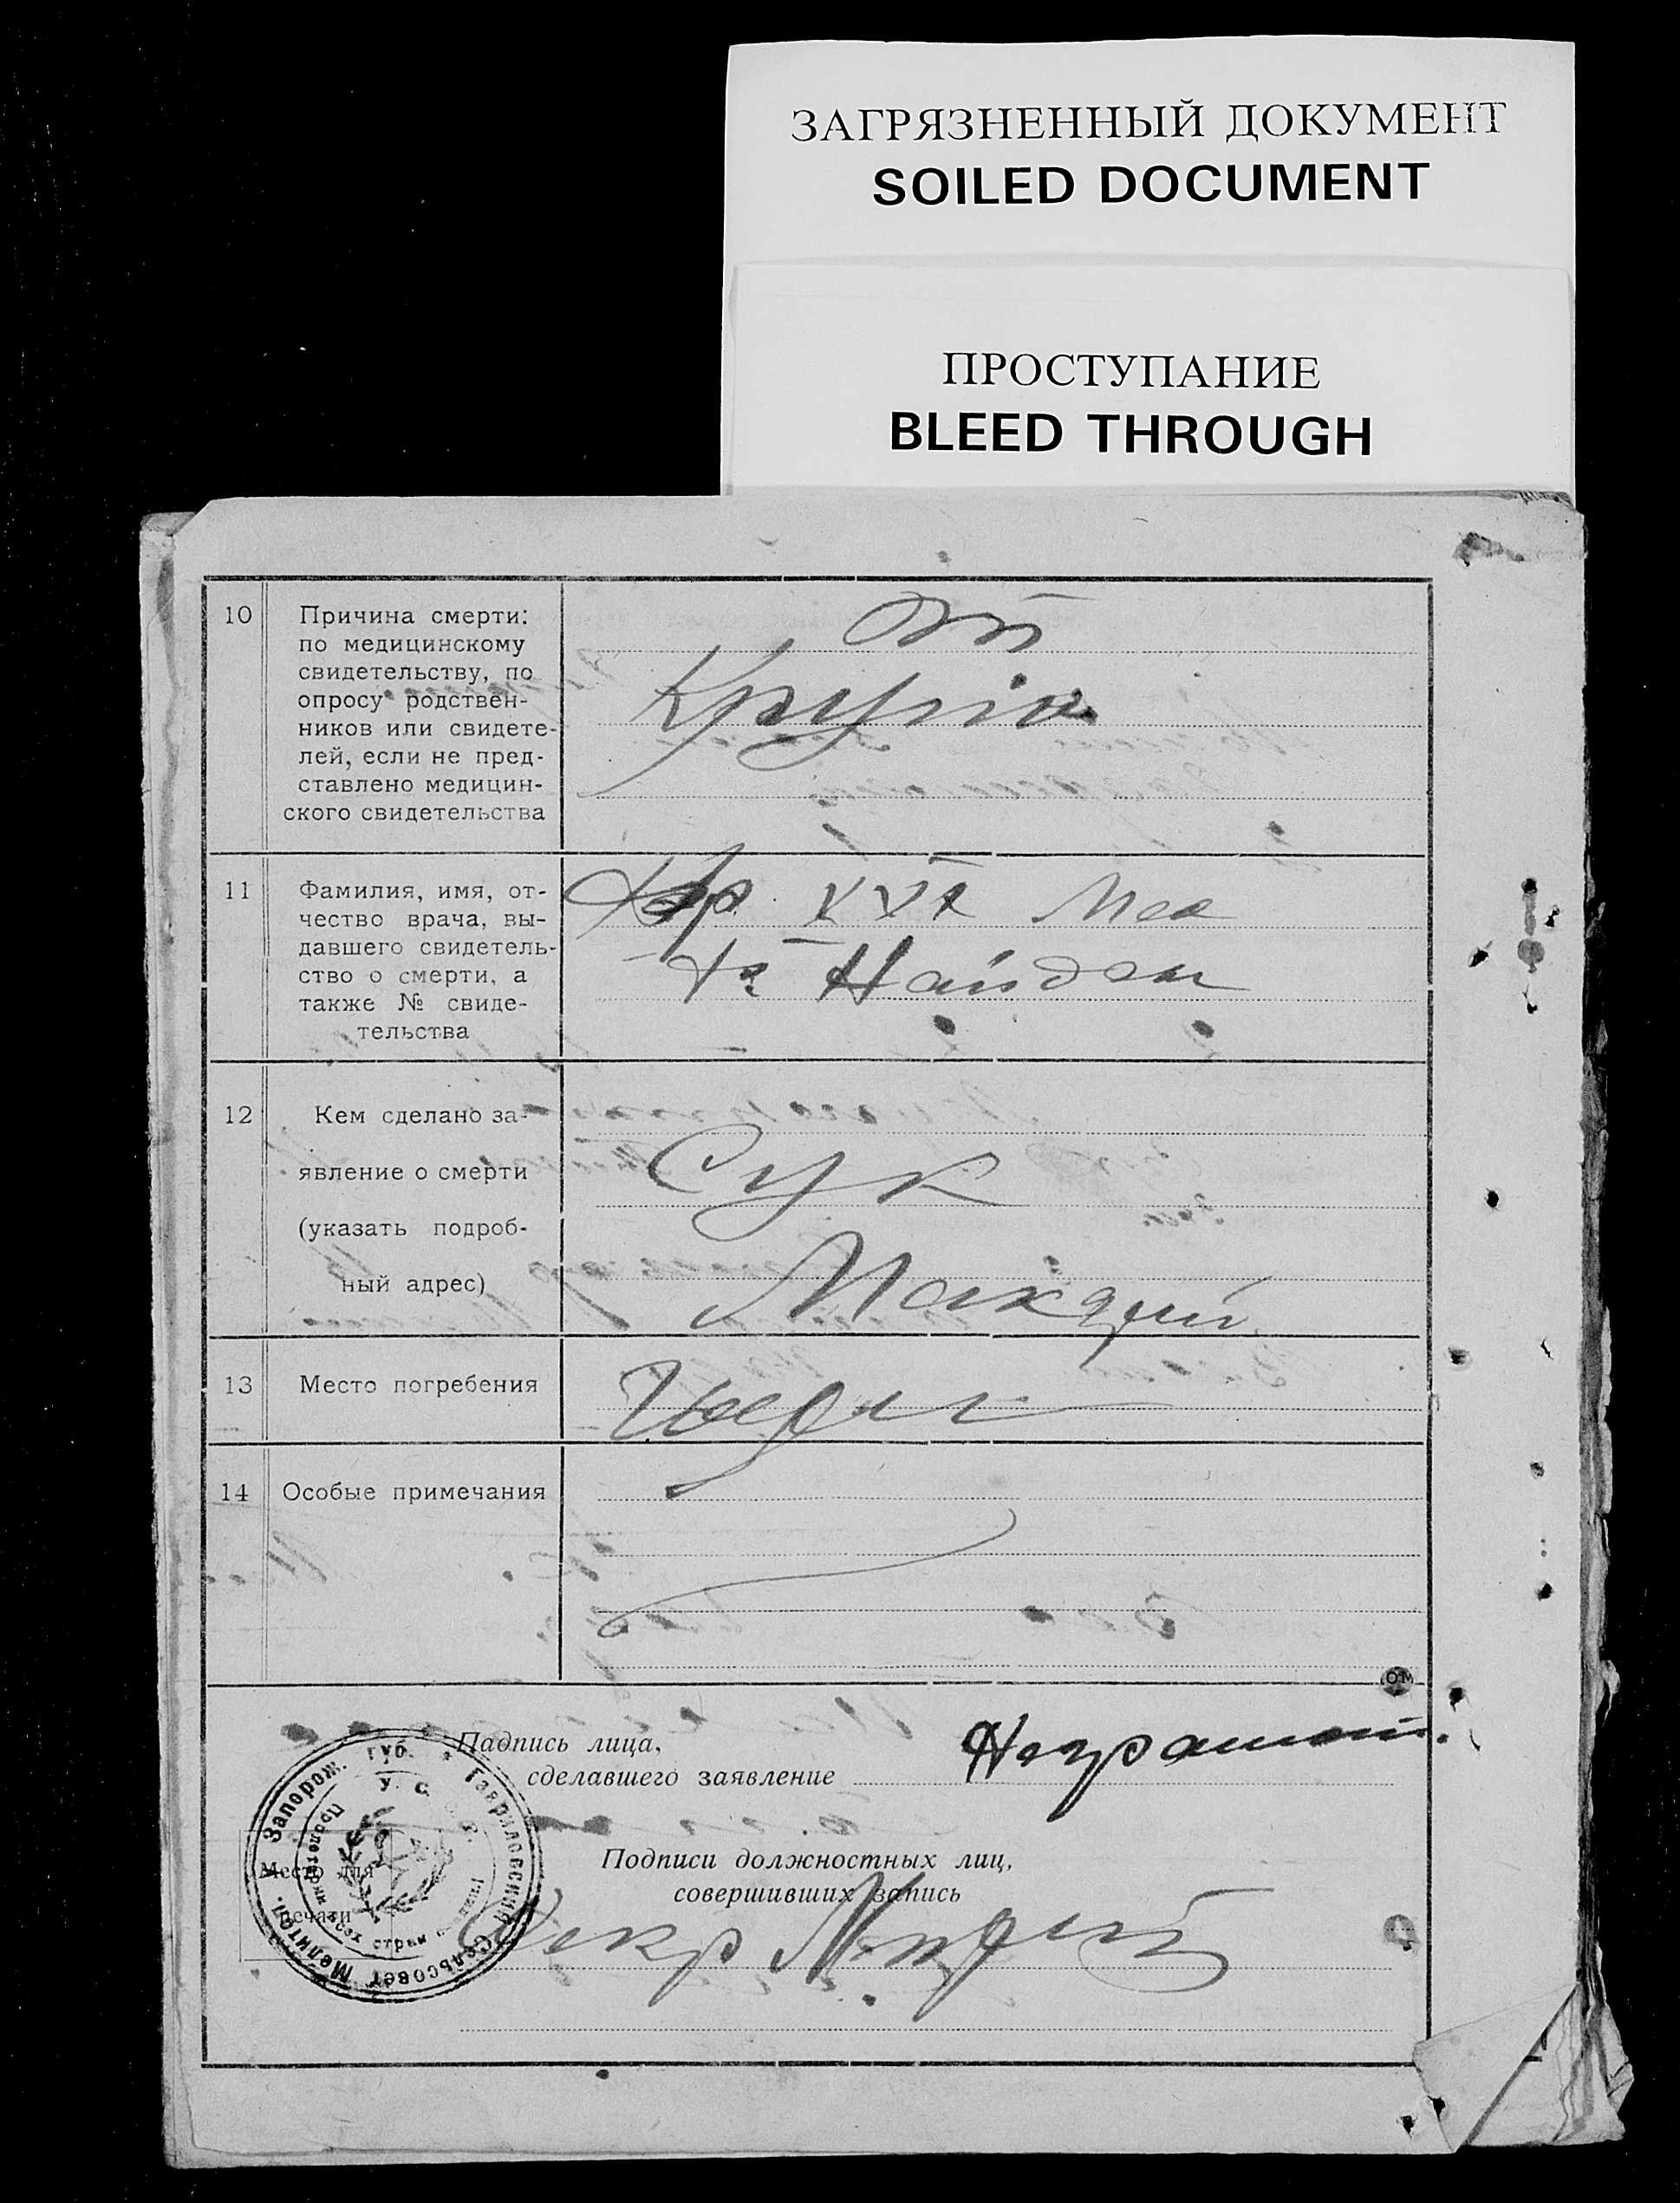 ЗАГРЯЗНЕННЫЙ ДОКУМЕНТ
SOILED DOCUMENT
ПРОСТУПАНИЕ
BLEED THROUGH
10
Причина смерти:
по медицинскому
свидетельству, по
опросу родствен-
ников или свидете-
лей, если не пред-
ставлено медицин-
ского свидетельства
от
Крупа
11
Фамилия, имя, от-
чество врача, вы-
давшего свидетель-
ство о смерти, а
также № свиде-
тельства
12
Кем сделано за-
явление о смерти
(указать подроб-
ный адрес)
Сук
13
Место погребения
14
Особые примечания
Падпись лица,
сделавшего заявление
Неграмот.
Подписи должностных лиц,
совершивших запись
Секр
Место для
печати
Запорож. губ. Гавриловский Сельсовет Мелитоп.
У. С.